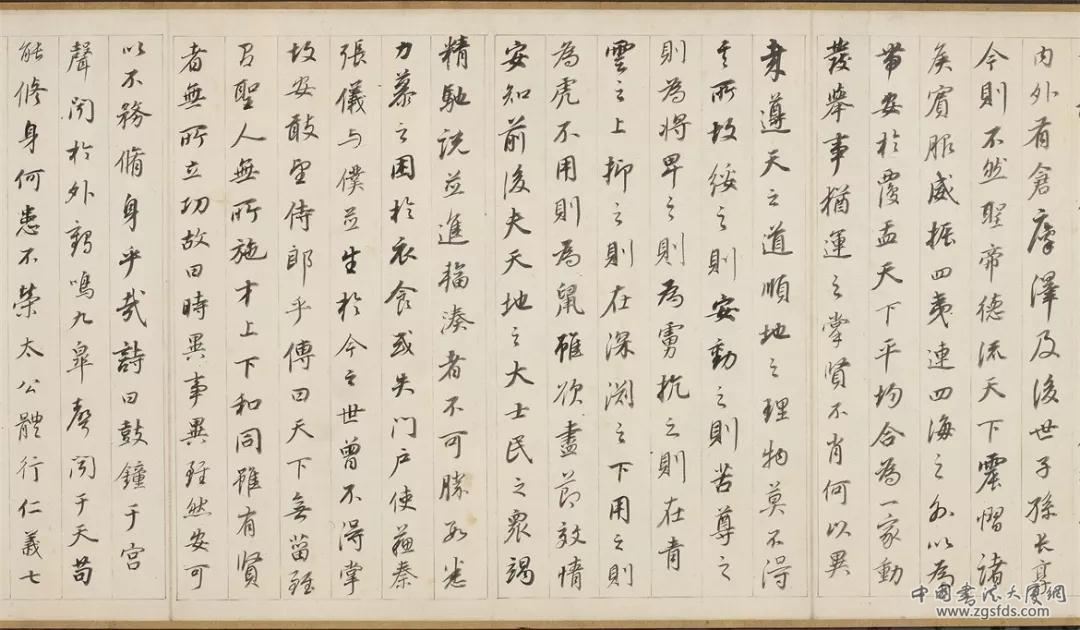 内外有倉廩澤及後世子孫长享
今則不然聖帝德流天下震慴諸
侯賓服威振四夷連四海之外以為
帶安於覆盂天下平均合為一家動
發舉事猶運之掌賢不肖何以異
哉遵天之道順地之理物莫不得
其所故綏之則安動之則苦尊之
則為將卑之則為虜抗之則在青
雲之上抑之則在深淵之下用之則
為虎不用則為鼠雖欲盡節效情
安知前後夫天地之大士民之眾竭
精馳說並進輻湊者不可勝數悉
力慕之困於衣食或失門戶使蘇秦
張儀与僕並生於今之世曾不得掌
故安敢望侍郎乎傳曰天下無菑雖
聖人無所施才上下和同雖有賢
者無所立功故曰時異事異雖然安可
以不務脩身乎哉詩曰鼓鐘于宮
聲聞於外鶴鳴九皋聲聞于天苟
能修身何患不榮太公體行仁義七
中国书法大厦網
www.zgsfds.com